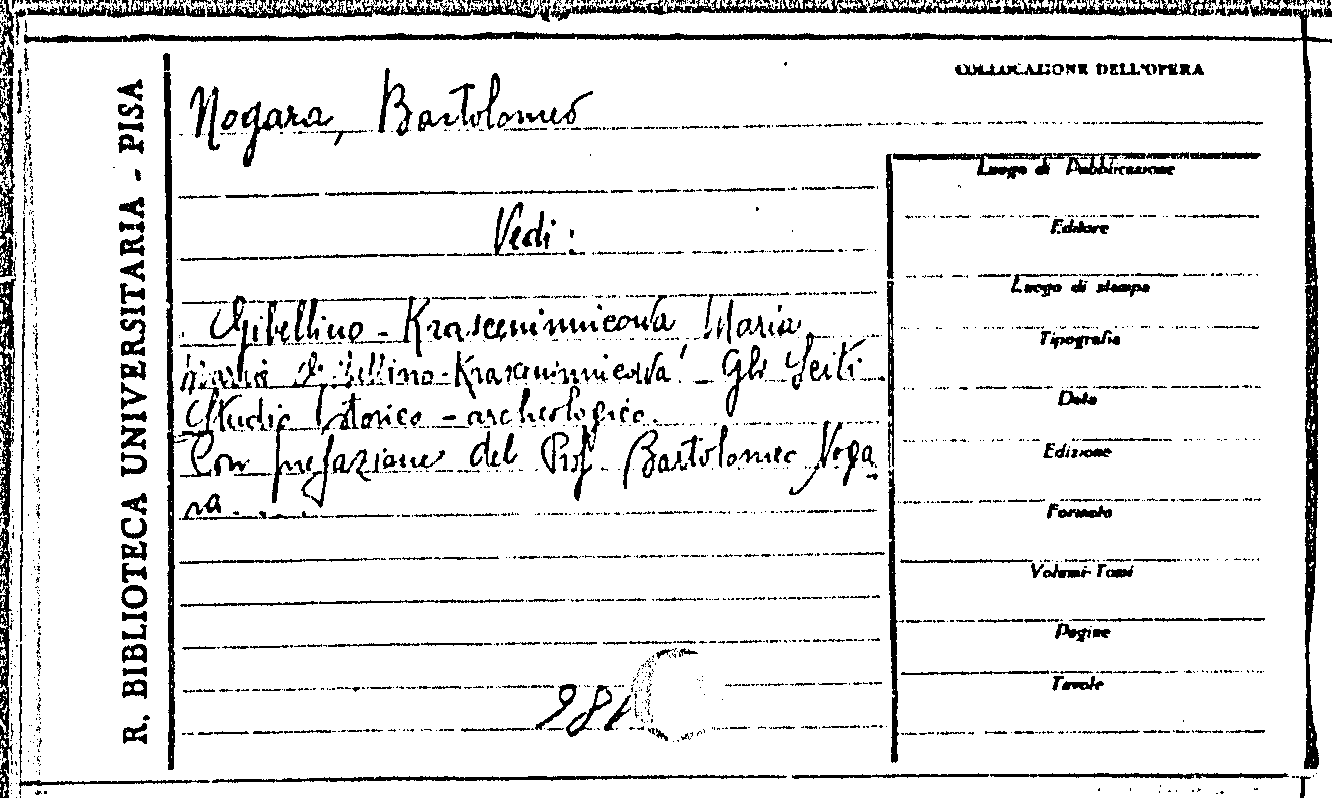 R. BIBLIOTECA UNIVERSITARIA - PISA
COLLOCAZIONE DELL'OPERA
Nogara, Bartolomeo
Vedi:
Gibellino-Krasceninnicowa Maria
Maria Gibellino-Krasceninnicowa - Gli Sciti
Studio storico-archeologico.
Con prefazione del Prof. Bartolomeo Noga-
ra.....
Luogo di Pubblicazione
Editore
Luogo di stampa
Tipografia
Data
Edizione
Formato
Volumi-Tomi
Pagine
Tavole